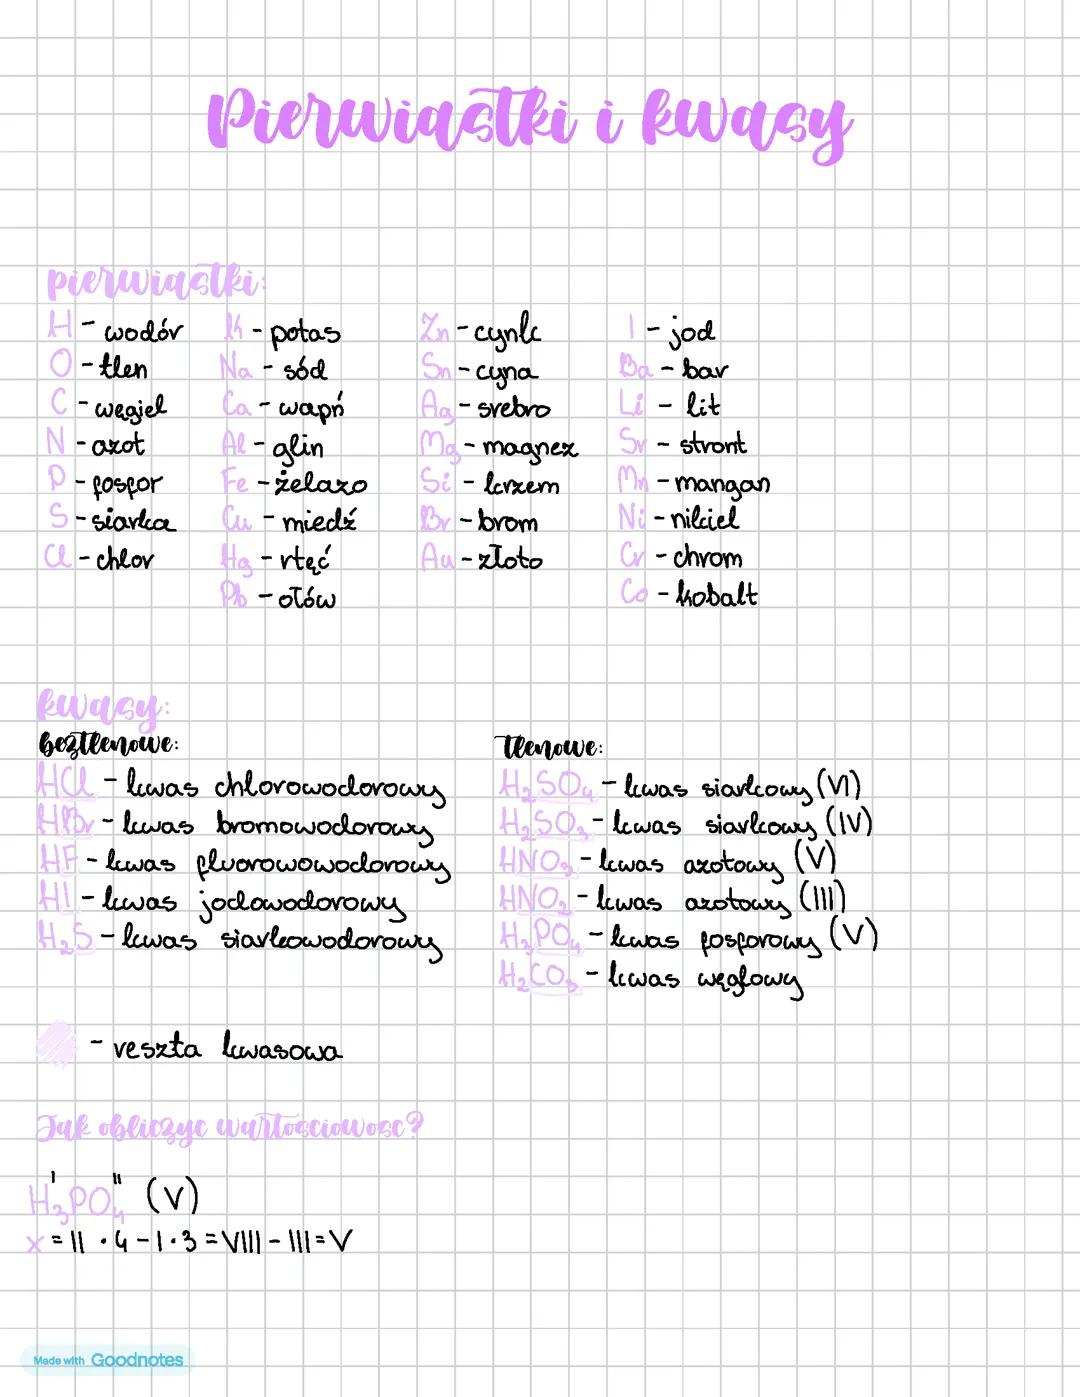 Pierwiąstki i kwasy
pierwiąstki:
H - wodór
O - tlen
C - węgiel
N - azot
P - fosfor
S - siarka
Cl - chlor
K - potas
Na - sód
Ca - wapń
Al - glin
Fe - żelazo
Cu - miedź
Hg - rtęć
Pb - ołów
Zn - cynk
Sn - cyna
Ag - srebro
Mg - magnez
Si - krzem
Br - brom
Au - złoto
I - jod
Ba - bar
Li - lit
Sr - stront
Mn - mangan
Ni - nikiel
Cr - chrom
Co - kobalt
kwasy:
beztlenowe:
HCl - kwas chlorowodorowy
HBr - kwas bromowodorowy
HF - kwas fluorowowodorowy
HI - kwas jodowodorowy
H₂S - kwas siarkowodorowy
tlenowe:
H₂SO₄ - kwas siarkowy (VI)
H₂SO₃ - kwas siarkowy (IV)
HNO₃ - kwas azotowy (V)
HNO₂ - kwas azotowy (III)
H₃PO₄ - kwas fosforowy (V)
H₂CO₃ - kwas węglowy
- reszta kwasowa
Jak obliczyc wartosciowosc?
H₃ᴵPO₄ᴵᴵ (V)
x = II · 4 - I · 3 = VIII - III = V
Made with Goodnotes